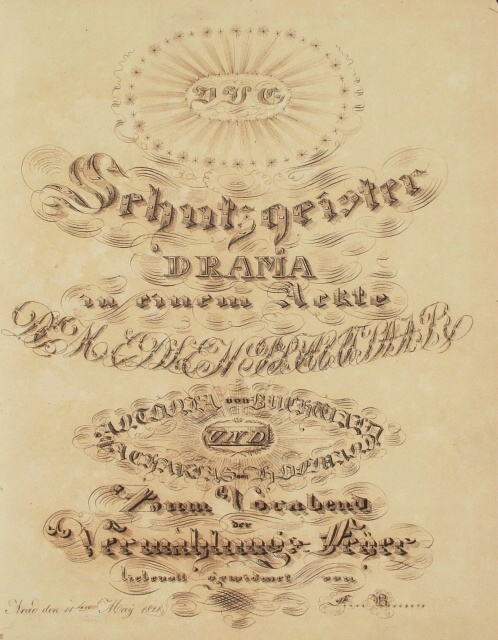 DIE
Schutzgeister
DRAMA
in einem Ackte
DEM EDLEN BRAUTPAAR
ANTONIA von BUCHWALD
UND
ZACHARIAS von HOFMANN
Zum Vorabend
der
Vermählungs-Feyer
liebevoll gewidmet von
Arad den 11ten May 1828